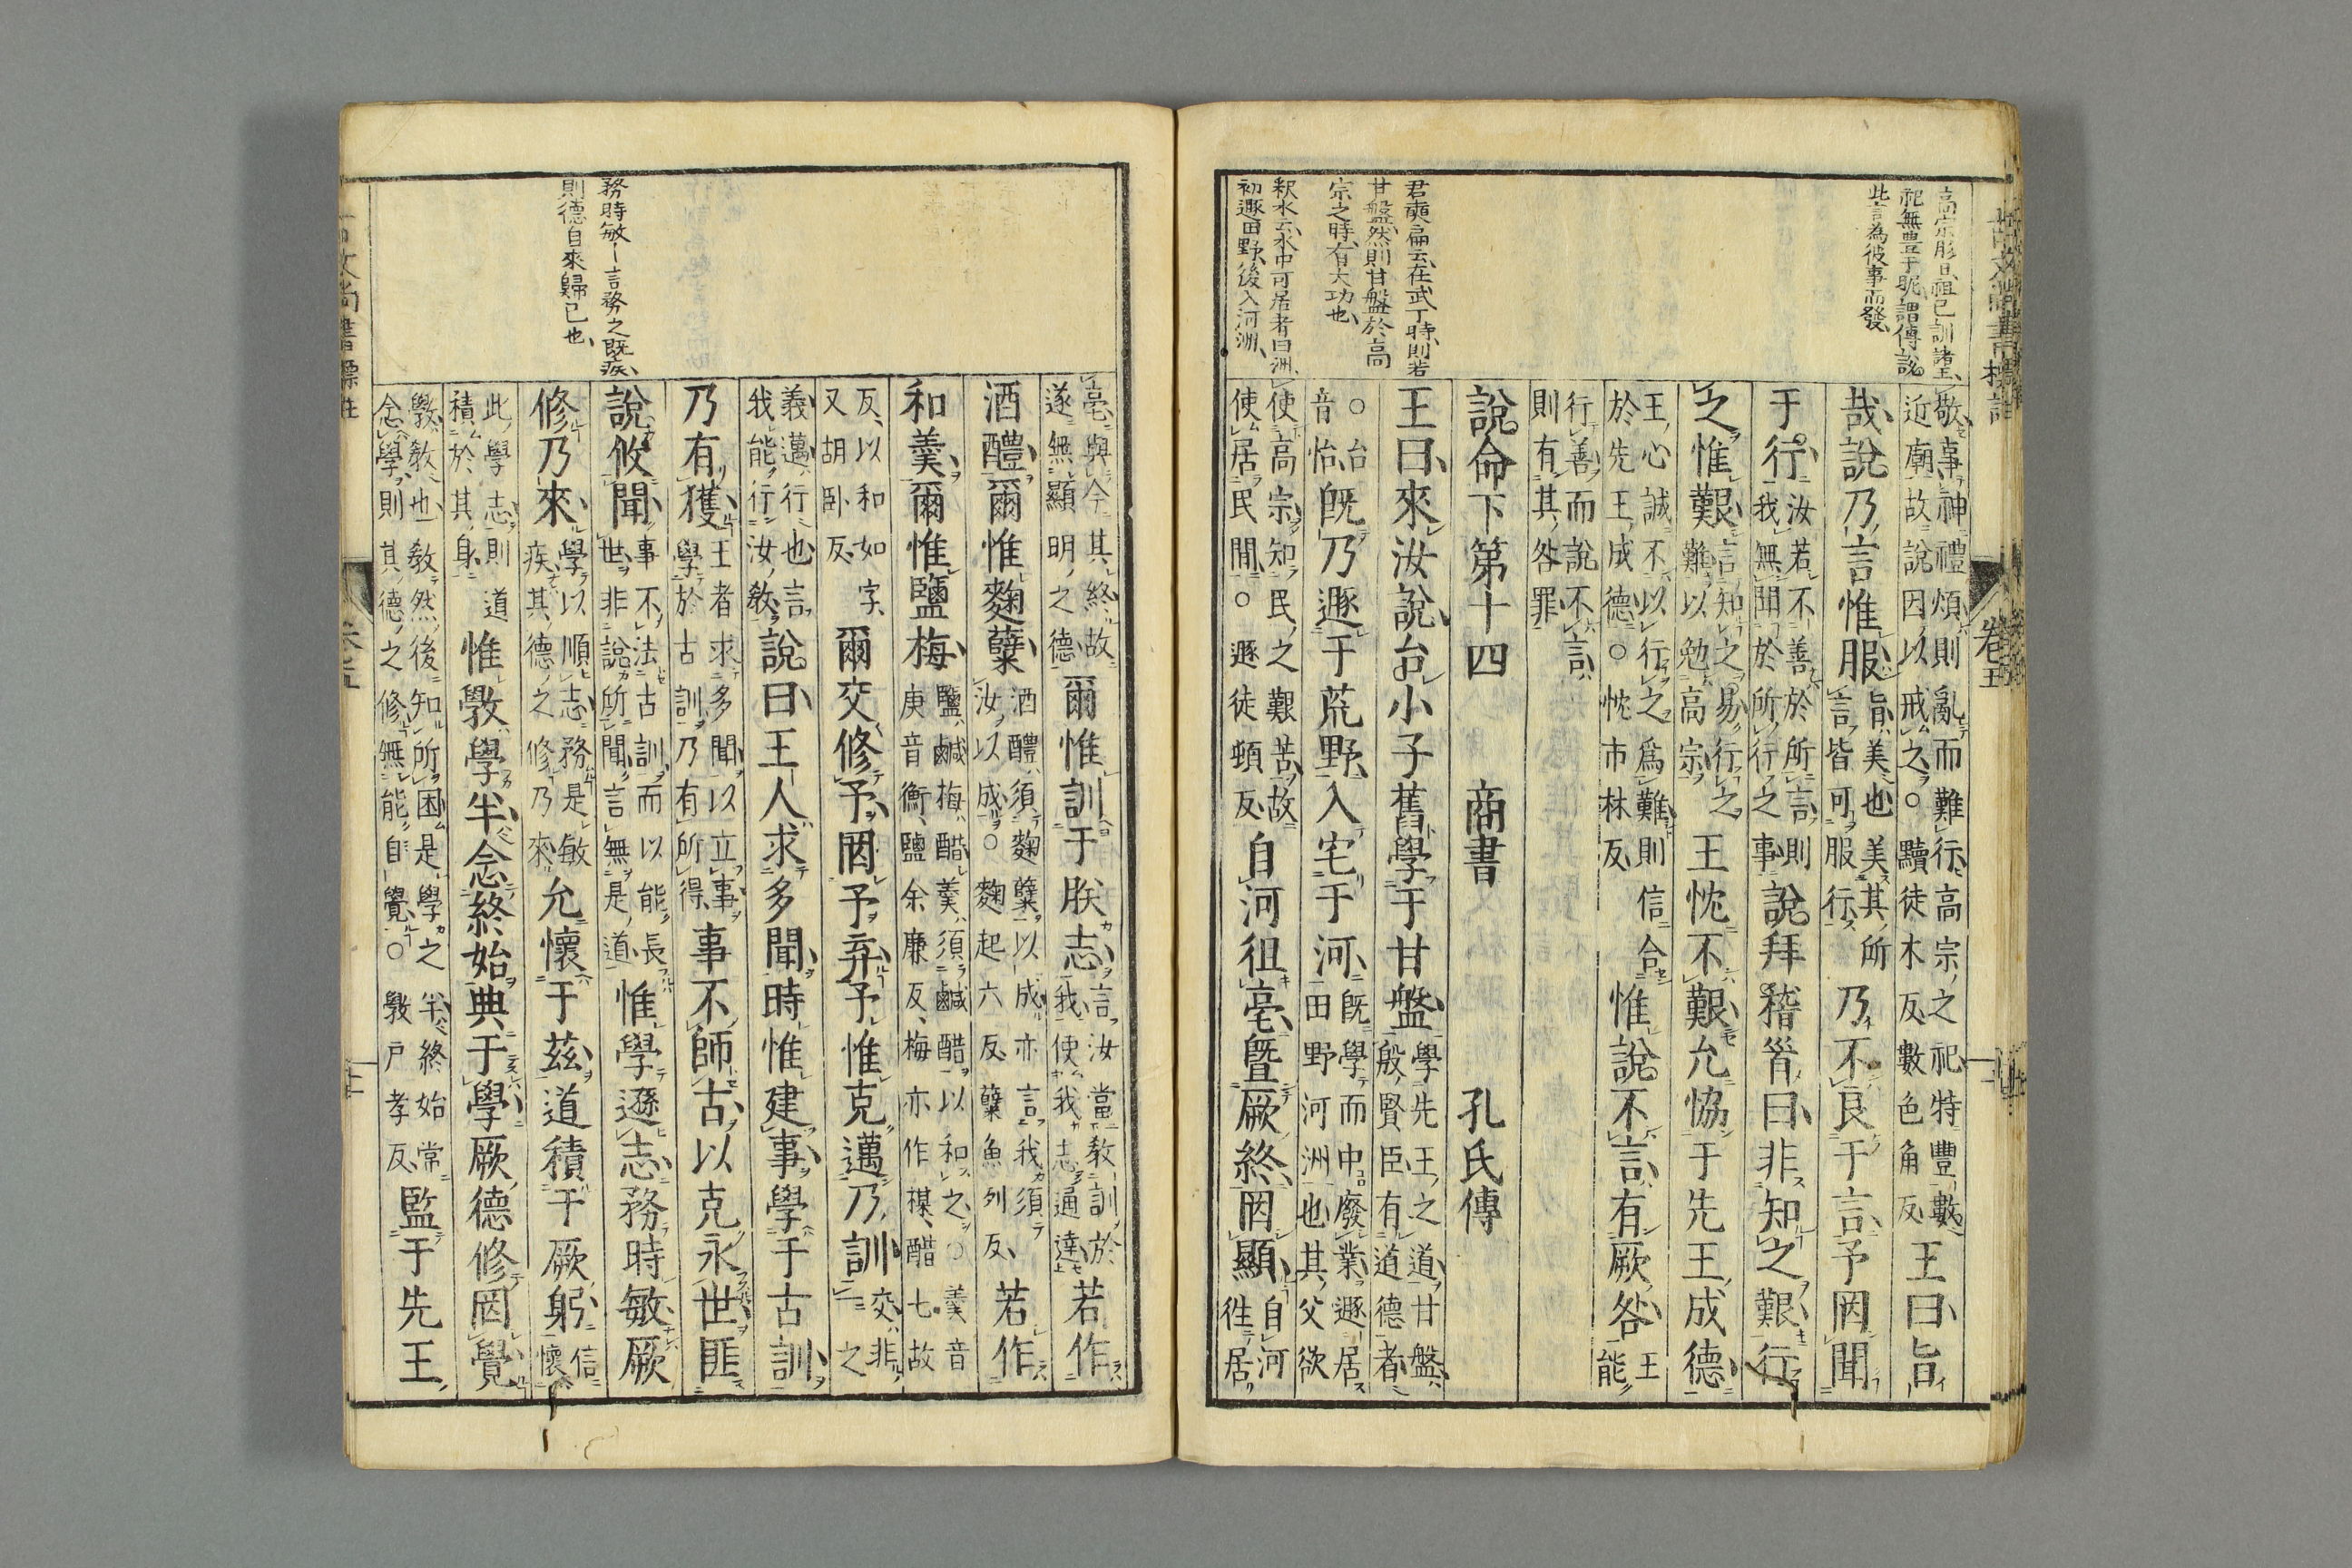 高宗肜日祖己訓諸王
祀無豊于昵謂傅說
此言為彼事而發
敬事神禮煩則亂而難行高宗之祀特豐數
近廟故說因以戒之○黷徒木反數色角反
王曰旨
哉說乃言惟服
旨美也美其所
言皆可服行
乃不良于言予罔聞
于行
汝若不善於所言則
我無聞於所行之事
說拜稽首曰非知之艱行
之惟艱
言知之易行之
難以勉高宗
王忱不艱允協于先王成德
王心誠不以行之爲難則信合
於先王成德○忱市林反
惟說不言有厥咎
王
能
行善而說不言
則有其咎罪
說命下第十四 商書 孔氏傳
君奭扁云在武丁時則若
甘盤然則甘盤於高
宗之時有大功也
釈水云水中可居者曰洲
初遯田野後入河洲
王曰來汝說台小子舊學于甘盤
學先王之道甘盤
殷賢臣有道德者
○台
音怡
既乃遯于荒野入宅于河
既學而中廢業遯居
田野河洲也其父欲
使高宗知民之艱苦故
使居民間○遯徒頓反
自河徂亳曁厥終罔顯
自河
徃居
亳與今其終故
遂無顯明之德
爾惟訓于朕志
言汝當教訓於
我使我志通達
若作
酒醴爾惟麴糵
酒醴須麴糵以成亦言我須
汝以成○麴起六反糵魚列反
若作
和羹爾惟鹽梅
鹽鹹梅醋羹須鹹醋以和之○羹音
庚音衡鹽余廉反梅亦作楳醋七故
反以和如字
又胡臥反
爾交修予罔予弃予惟克邁乃訓
交非
之
義邁行也言
我能行汝教
說曰王人求多聞時惟建事學于古訓
乃有獲
王者求多聞以立事
學於古訓乃有所得
事不師古以克永世匪
務時敏―言務之既疾
則德自來歸已也
說攸聞
事不法古訓而以能長
世非說所聞言無是道
惟學遜志務時敏厥
修乃來
學以順志務是敏
疾其德之修乃來
允懷于茲道積于厥躬
信
懷
此學志則道
積於其身
惟斆學半念終始典于學厥德修罔覺
斆教也教然後知所困是學之半終始常
念學則其德之修無能自覺○斆戶孝反
監于先王